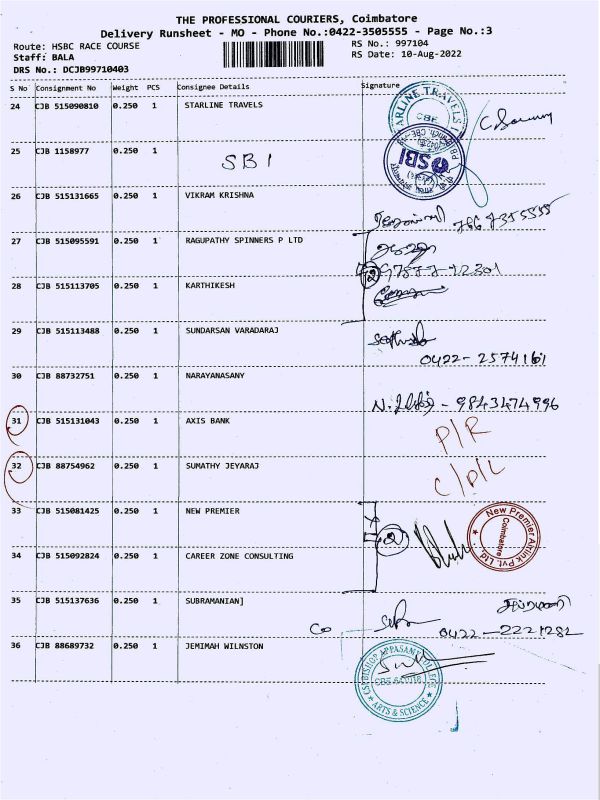 THE PROFESSIONAL COURIERS, Coimbatore
Delivery Runsheet - MO - Phone No.:0422-3505555 - Page No.:3
Route: HSBC RACE COURSE RS No.: 997104
Staff: BALA RS Date: 10-Aug-2022
DRS No.: DCJB99710403
S No Consignment No Weight PCS Consignee Details Signature
24 CJB 515090810 0.250 1 STARLINE TRAVELS
CBE
25 CJB 1158977 0.250 1 SBI
SBI
26 CJB 515131665 0.250 1 VIKRAM KRISHNA
27 CJB 515095591 0.250 1 RAGUPATHY SPINNERS P LTD
2
28 CJB 515113705 0.250 1 KARTHIKESH
29 CJB 515113488 0.250 1 SUNDARSAN VARADARAJ
0422-2574161
30 CJB 88732751 0.250 1 NARAYANASANY
9843474996
31 CJB 515131043 0.250 1 AXIS BANK P/R
32 CJB 88754962 0.250 1 SUMATHY JEYARAJ C/D/L
33 CJB 515081425 0.250 1 NEW PREMIER
2
New Premier Artlink Pvt. Ltd.
Coimbatore
34 CJB 515092824 0.250 1 CAREER ZONE CONSULTING
35 CJB 515137636 0.250 1 SUBRAMANIAN]
Co 0422-2221282
36 CJB 88689732 0.250 1 JEMIMAH WILNSTON
ARTS & SCIENCE